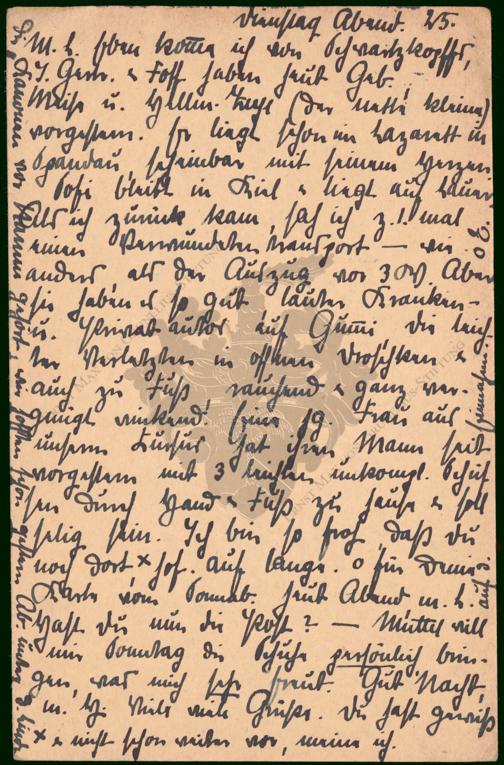 Dienstag Abend. 25.
M. L. Eben komme ich von Schwartzkopffs,
J. Gerw. & Foff haben heut Geb.
Meise u. Wellm. (der nette kleine)
vorgestern. Er liegt schon im Lazarett in
Spandau, scheinbar mit seinem Herzen
bleibt in Kiel & liegt auf Lauer
Als ich zurück kam, sah ich z. 1. mal
einen Verwundetentransport — wie
anders als der Auszug vor 3 W. Aber
sie haben es so gut lauter Kranken-
u. Privatautos auf Gummi die leich
ter Verletzten in offnen Droschken &
auch zu Fuß rauchend & ganz ver-
gnügt winkend! Eine jg. Frau aus
unserm Kursus hat ihren Mann seit
vorgestern mit 3 leichten unkompl. Schüs
sen durch Hand & Fuß zu Hause & soll
selig sein. Ich bin so froh, daß du
noch dort x hof. auf lange. für Deine
Karte vom Sonnab. heut Abend m. L.
Hast du nun die Post? — Muttel will
mir Sonntag die Schuhe persönlich brin-
gen, was mich sehr freut. Gut Nacht,
m. H. Viele viele Grüße. Du hast gewiß
x & nicht schon weiter vor, meine ich.
Kanonen vor Namur gehört, wir hofften schon gestern Ab.